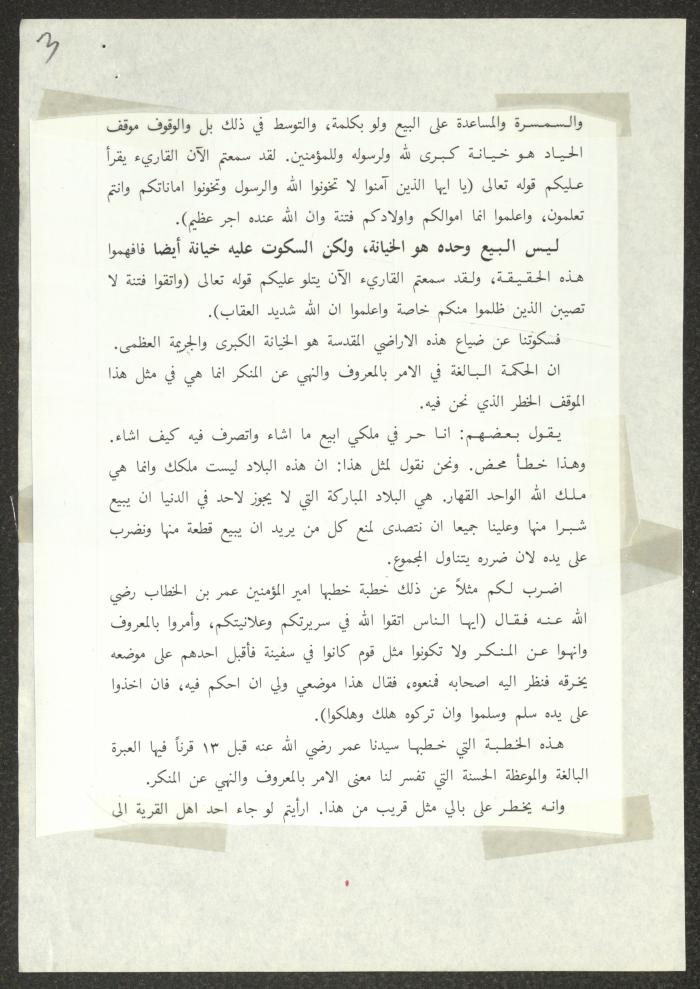 3
والسمسرة والمساعدة على البيع ولو بكلمة، والتوسط في ذلك بل والوقوف موقف
الحياد هو خيانة كبرى لله ولرسوله وللمؤمنين. لقد سمعتم الآن القاريء يقرأ
عليكم قوله تعالى (يا ايها الذين آمنوا لا تخونوا الله والرسول وتخونوا اماناتكم وانتم
تعلمون، واعلموا انما اموالكم واولادكم فتنة وان الله عنده اجر عظيم).
ليس البيع وحده هو الخيانة، ولكن السكوت عليه خيانة أيضا فافهموا
هذه الحقيقة، ولقد سمعتم القاريء الآن يتلو عليكم قوله تعالى (واتقوا فتنة لا
تصيبن الذين ظلموا منكم خاصة واعلموا ان الله شديد العقاب).
فسكوتنا عن ضياع هذه الاراضي المقدسة هو الخيانة الكبرى والجريمة العظمى.
ان الحكمة البالغة في الامر بالمعروف والنهي عن المنكر انما هي في مثل هذا
الموقف الخطر الذي نحن فيه.
يقول بعضهم: انا حر في ملكي ابيع ما اشاء واتصرف فيه كيف اشاء.
وهذا خطأ محض. ونحن نقول لمثل هذا: ان هذه البلاد ليست ملكك وانما هي
ملك الله الواحد القهار. هي البلاد المباركة التي لا يجوز لاحد في الدنيا ان يبيع
شبرا منها وعلينا جميعا ان نتصدى لمنع كل من يريد ان يبيع قطعة منها ونضرب
على يده لان ضرره يتناول المجموع.
اضرب لكم مثلاً عن ذلك خطبة خطبها امير المؤمنين عمر بن الخطاب رضي
الله عنه فقال (ايها الناس اتقوا الله في سريرتكم وعلانيتكم، وأمروا بالمعروف
وانهوا عن المنكر ولا تكونوا مثل قوم كانوا في سفينة فأقبل احدهم على موضعه
يخرقه فنظر اليه اصحابه فمنعوه، فقال هذا موضعي ولي ان احكم فيه، فان اخذوا
على يده سلم وسلموا وان تركوه هلك وهلكوا).
هذه الخطبة التي خطبها سيدنا عمر رضي الله عنه قبل ١٣ قرناً فيها العبرة
البالغة والموعظة الحسنة التي تفسر لنا معنى الامر بالمعروف والنهي عن المنكر.
وانه يخطر على بالي مثل قريب من هذا. ارأيتم لو جاء احد اهل القرية الى